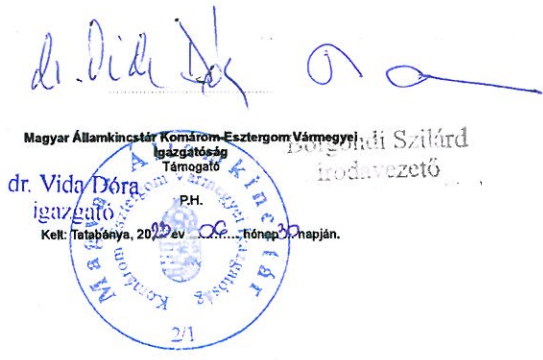 dr. Vida Dóra
Magyar Államkincstár Komárom-Esztergom Vármegyei
Igazgatóság
Támogató
Szilárd
irodavezető
dr. Vida Dóra
igazgató
P.H.
Kelt: Tatabánya, 20 év 06 hónap 30 napján.
Magyar Államkincstár
Komárom-Esztergom Vármegyei Igazgatóság
2/1